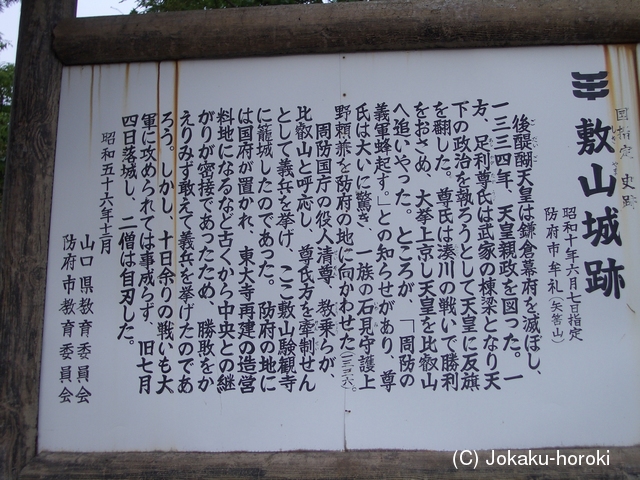 国指定 史跡
敷山城跡
昭和十年六月七日指定
防府市牟礼(矢筈山)
後醍醐天皇は鎌倉幕府を滅ぼし、
一三三四年、天皇親政を図った。一
方、足利尊氏は武家の棟梁となり天
下の政治を執ろうとして天皇に反旗
を翻した。尊氏は湊川の戦いで勝利
をおさめ、大挙上京し天皇を比叡山
へ追いやった。ところが、「周防の
義軍蜂起す。」との知らせがあり、尊
氏は大いに驚き、一族の石見守護上
野頼兼を防府の地に向かわせた(一三三六)。
周防国庁の役人清尊、教乗らが、
比叡山と呼応し、尊氏方を牽制せん
として義兵を挙げ、ここ敷山験観寺
に籠城したのであった。防府の地に
は国府が置かれ、東大寺再建の造営
料地になるなど古くから中央との継
がりが密接であったため、勝敗をか
えりみず敢えて義兵を挙げたのであ
ろう。しかし、十日余りの戦いも大
軍に攻められては事成らず、旧七月
四日落城し、二僧は自刃した。
昭和五十六年十二月
山口県教育委員会
防府市教育委員会
(C) Jokaku-horoki